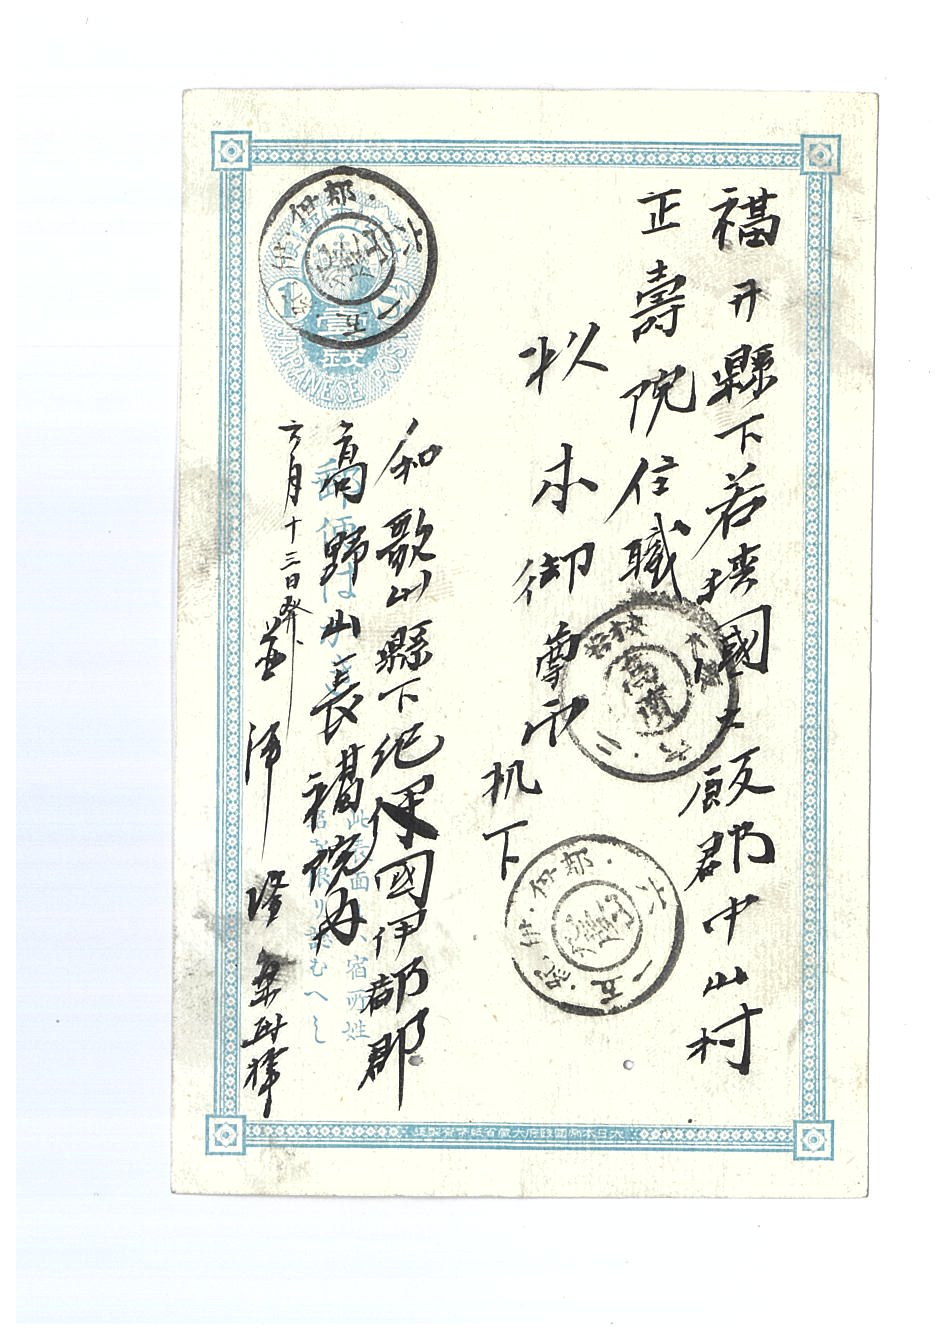 福井縣下若狭國大飯郡中山村
正壽院住職
杉本御尊師
机下
和歌山縣下紀伊國伊都郡
高野山長福院内
六月十三日発
郵便はかき
此表面 宿所姓
名 限り認むへし
壹錢
JAPANESE POST
紀伊・伊都
高濱
大日本帝國政府大藏省印刷局製造